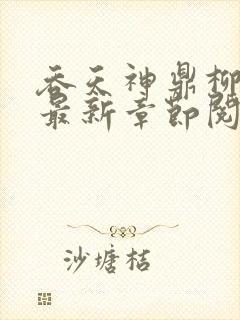 吞天神鼎柳
最新章节阅
沙塘桔